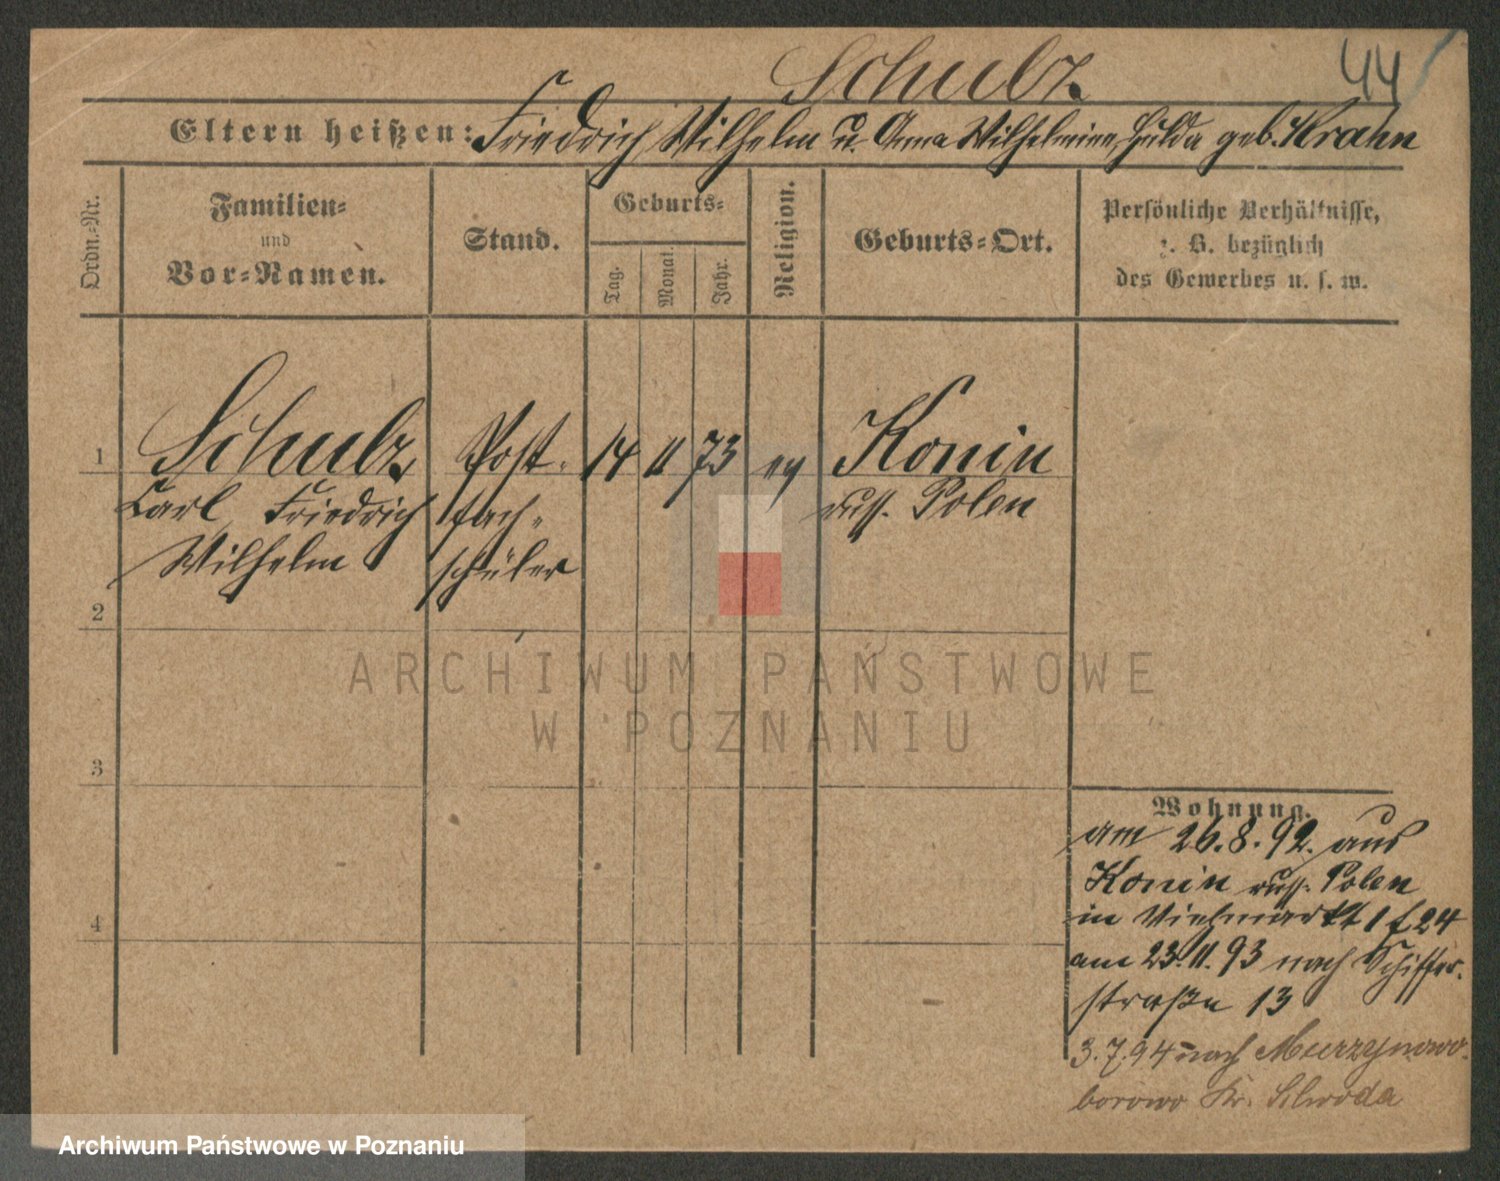 Schulz 44
Eltern heißen: Friedrich Wilhelm u. Anna Wilhelmine Hulda geb. Krahn
Ordn.-Nr.
Familien-
und
Vor-Namen.
Stand.
Geburts-
Tag.
Monat.
Jahr.
Religion.
Geburts-Ort.
Persönliche Verhältnisse,
z. B. bezüglich
des Gewerbes u. s. w.
1 Schulz Post- 14 11 73 ev Konin
Carl Friedrich fach- russ. Polen
Wilhelm schüler
2
3
4
Wohnung.
am 26.8.92. aus
Konin russ. Polen
in Viehmarkt 1 f 24
am 23.11.93 nach Schiffer-
straße 13
3.7.94 nach Murzynowo-
borowo Kr. Schroda
ARCHIWUM PAŃSTWOWE
W POZNANIU
Archiwum Państwowe w Poznaniu